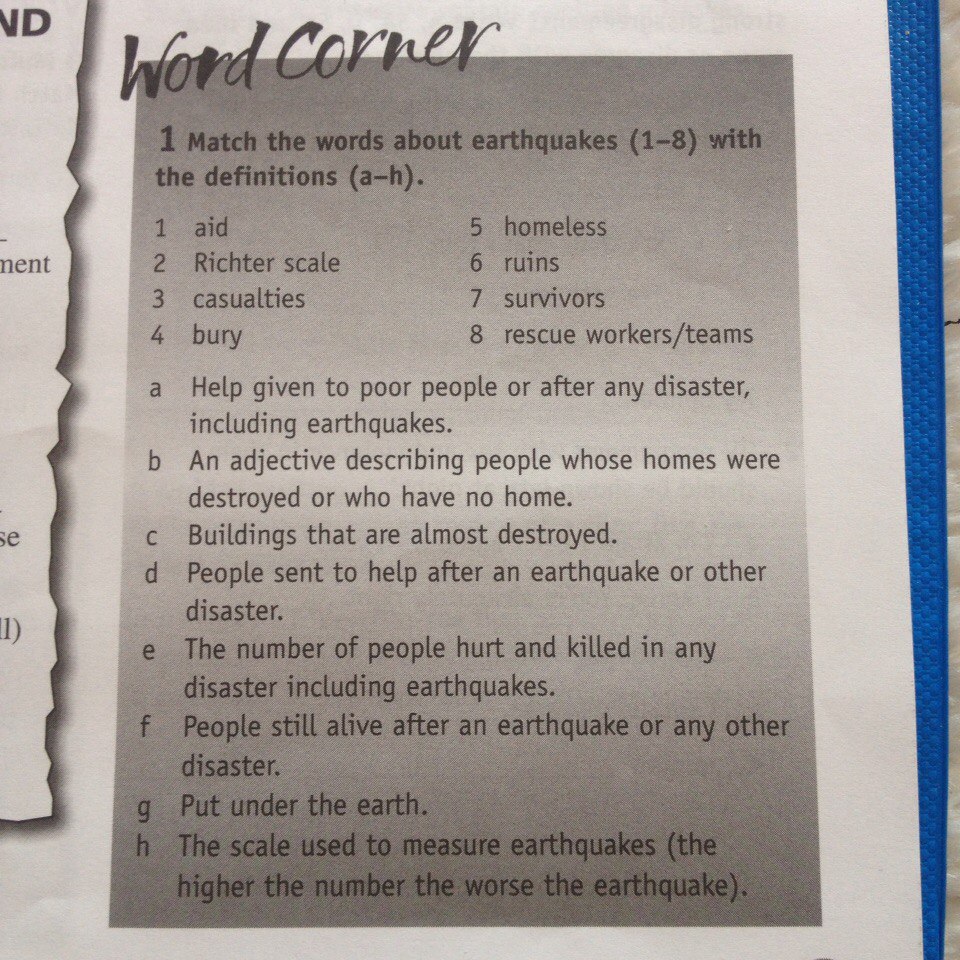 ND
ment
se
ll)
Word Corner
1 Match the words about earthquakes (1–8) with
the definitions (a–h).
1 aid
2 Richter scale
3 casualties
4 bury
5 homeless
6 ruins
7 survivors
8 rescue workers/teams
a Help given to poor people or after any disaster,
including earthquakes.
b An adjective describing people whose homes were
destroyed or who have no home.
c Buildings that are almost destroyed.
d People sent to help after an earthquake or other
disaster.
e The number of people hurt and killed in any
disaster including earthquakes.
f People still alive after an earthquake or any other
disaster.
g Put under the earth.
h The scale used to measure earthquakes (the
higher the number the worse the earthquake).